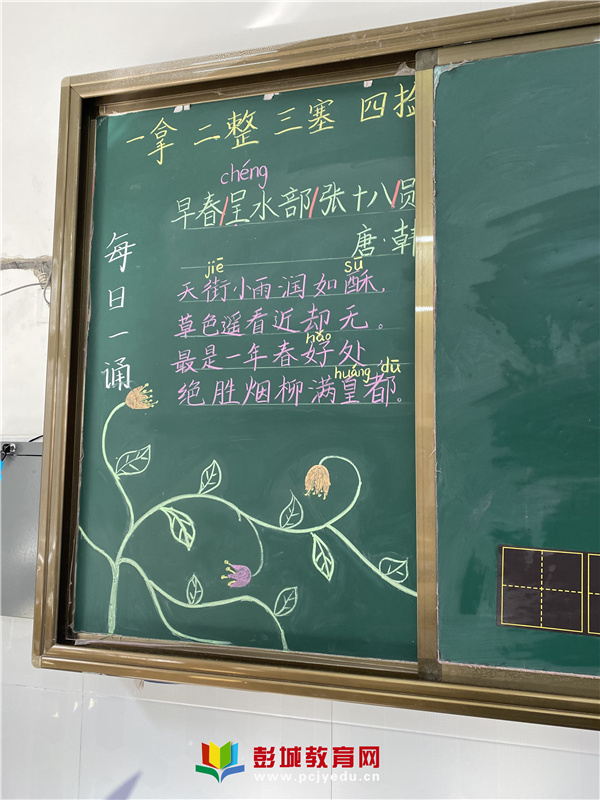 一拿 二整 三塞 四捡
chéng
早春/呈水部/张十八/员
唐·韩
jiē sū
天街小雨润如酥,
草色遥看近却无。
hǎo
最是一年春好处
huáng dū
绝胜烟柳满皇都。
每日一诵
彭城教育网
www.pcjyedu.cn